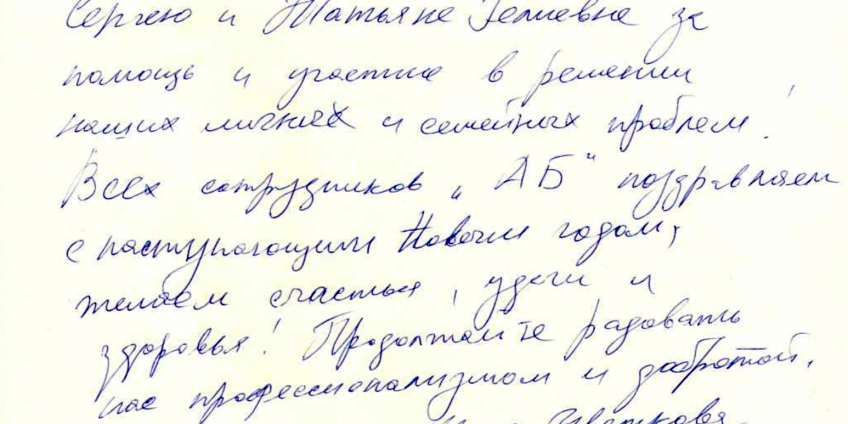 Сергею и Татьяне Гелиевне за
помощь и участие в решении
наших личных и семейных проблем!
Всех сотрудников "АБ" поздравляем
с наступающим Новым годом,
желаем счастья, удачи и
здоровья! Продолжайте радовать
нас профессионализмом и добротой.